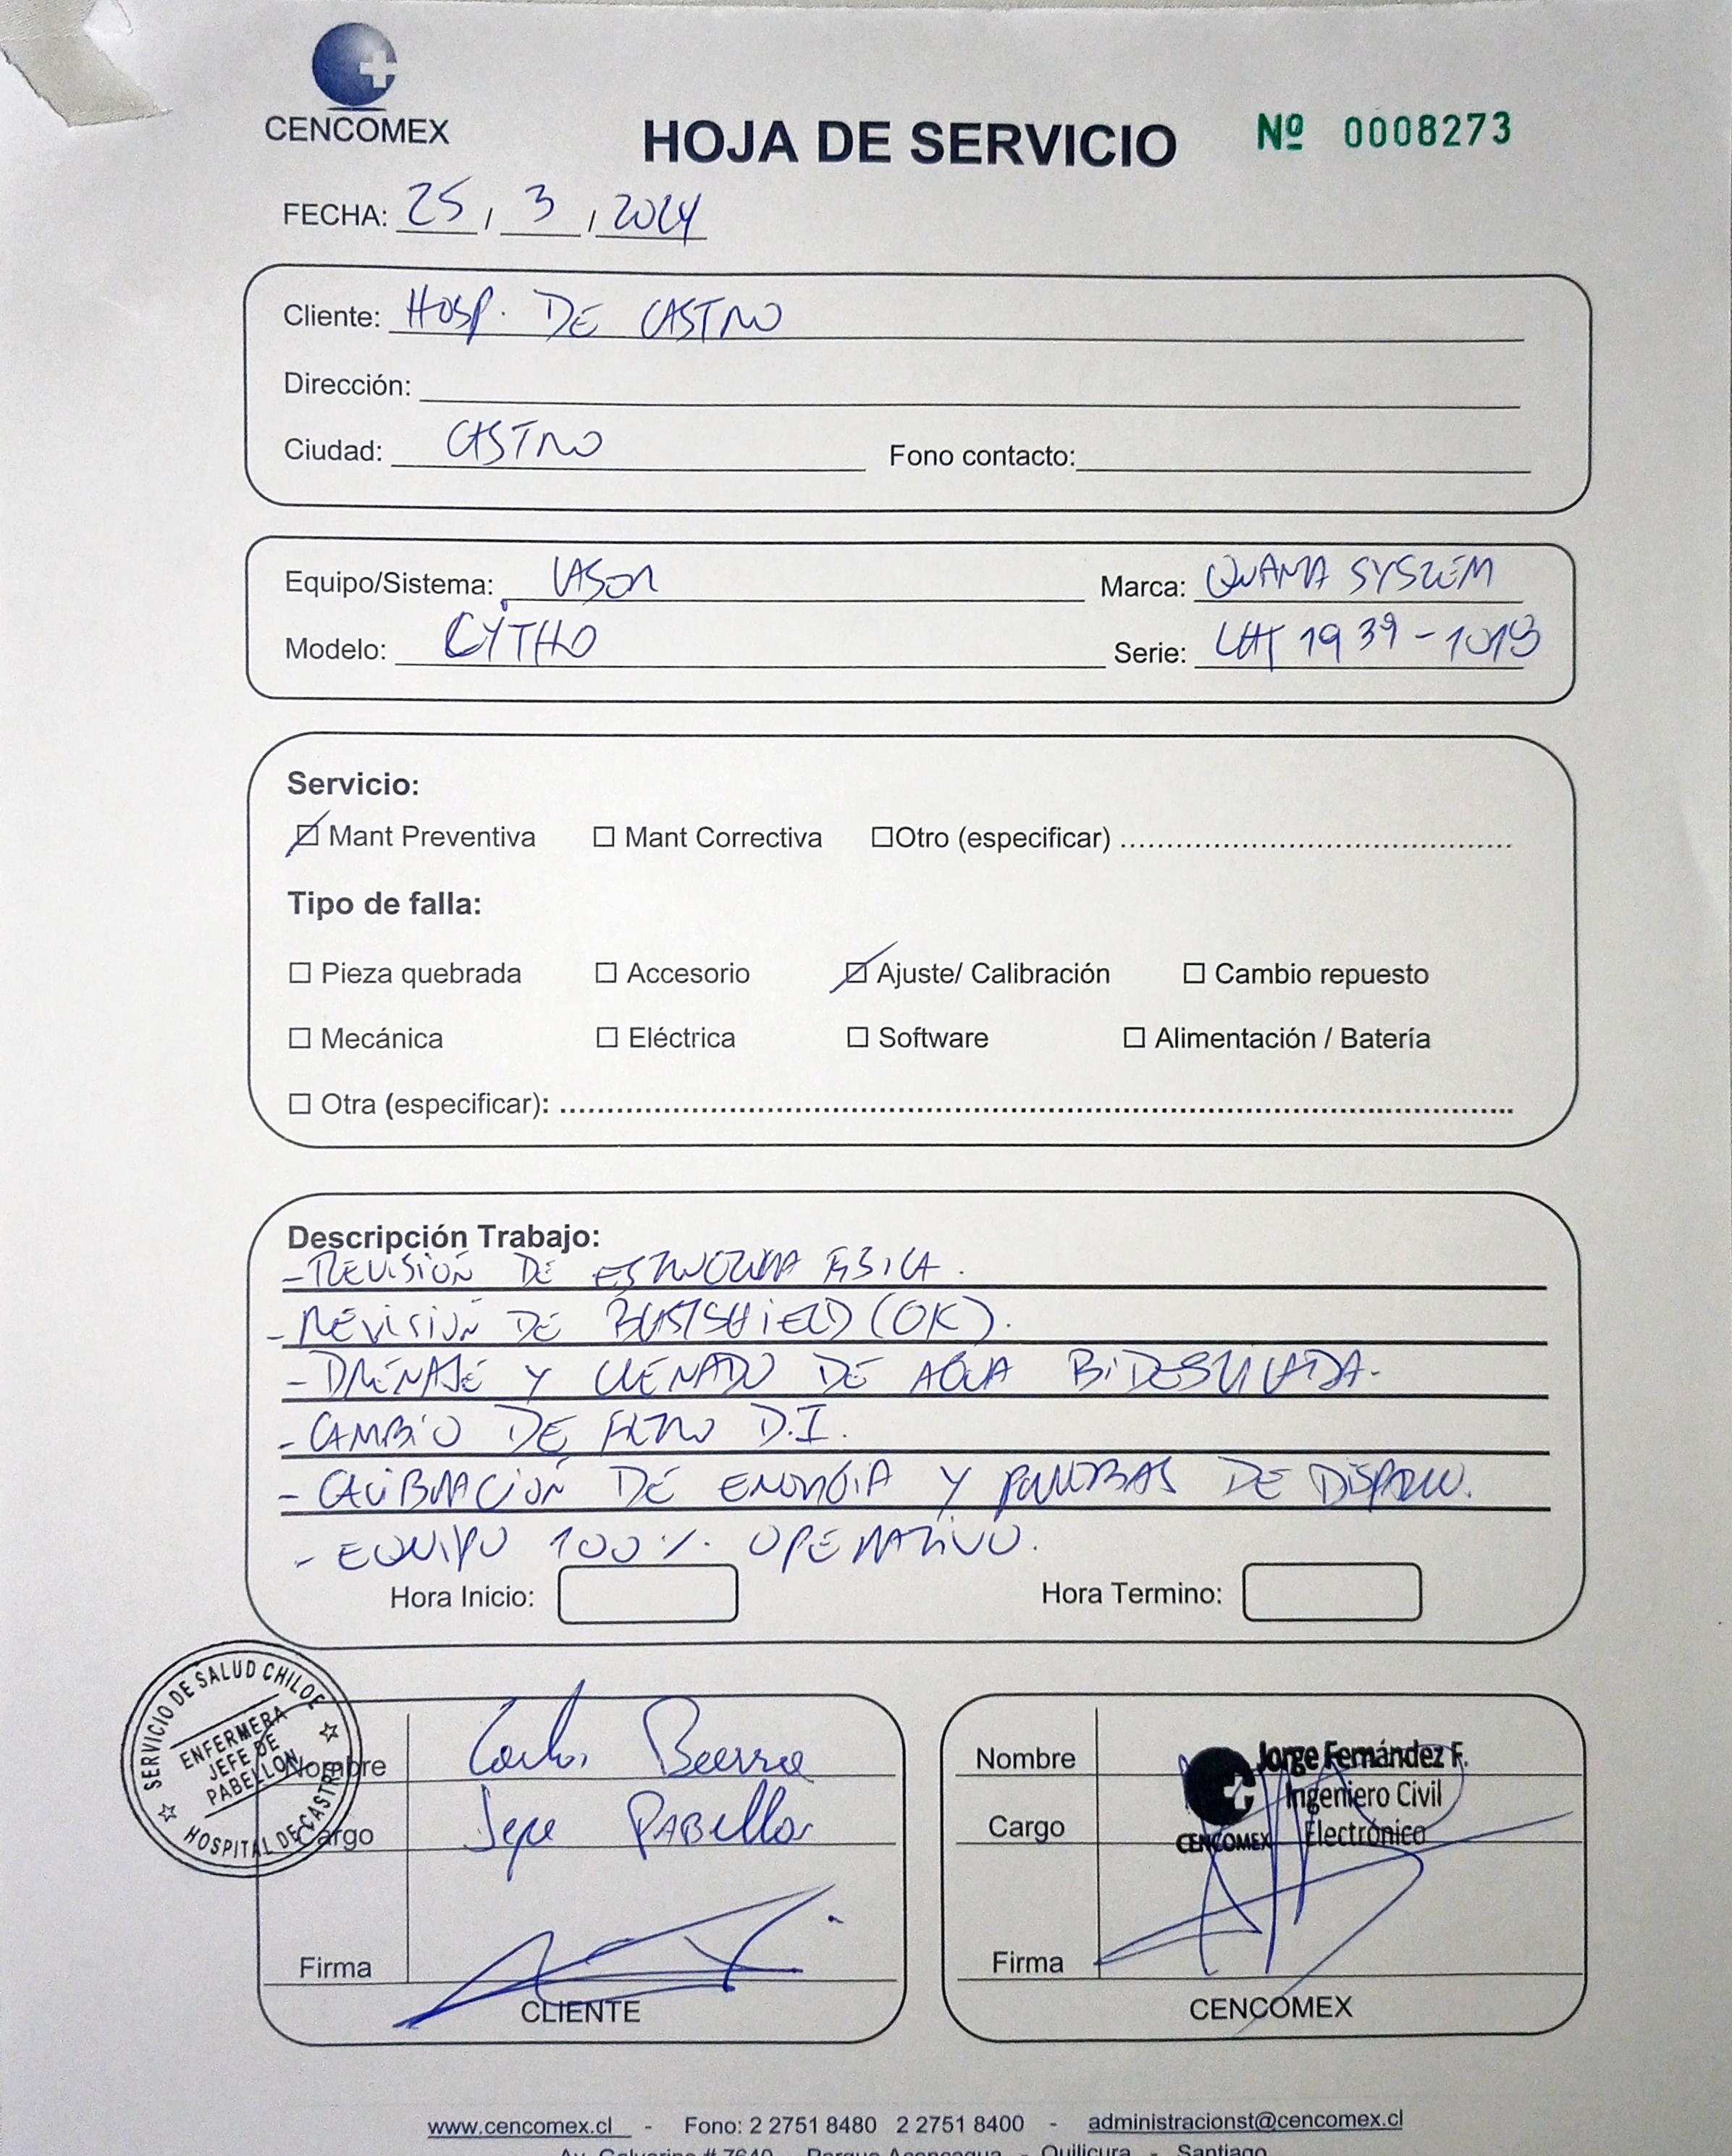 CENCOMEX
HOJA DE SERVICIO Nº 0008273
FECHA: 25 / 3 / 2024
Cliente: HOSP. DE CASTRO
Dirección:
Ciudad: CASTRO Fono contacto:
Equipo/Sistema: LASER Marca: QUANTA SYSTEM
Modelo: CYTHO Serie: 1939-1013
Servicio:
Mant Preventiva Mant Correctiva Otro (especificar)
Tipo de falla:
Pieza quebrada Accesorio Ajuste/ Calibración Cambio repuesto
Mecánica Eléctrica Software Alimentación / Batería
Otra (especificar):
Descripción Trabajo:
- REVISIÓN DE ESTRUCTURA FÍSICA.
- REVISIÓN DE BLASTSHIELD (OK).
- DRENAJE Y LLENADO DE AGUA BIDESTILADA.
- CAMBIO DE FILTRO D.I.
- CALIBRACIÓN DE ENERGÍA Y PRUEBAS DE DISPARO.
- EQUIPO 100%. OPERATIVO.
Hora Inicio: Hora Termino:
SERVICIO DE SALUD CHILOE
ENFERMERA
JEFE DE
PABELLON
HOSPITAL DE CASTRO
Nombre Carlos Becerra
Cargo Jefe PABellon
Firma
CLIENTE
Nombre Jorge Fernández F.
Ingeniero Civil
Cargo CENCOMEX Electrónico
Firma
CENCOMEX
www.cencomex.cl - Fono: 2 2751 8480 2 2751 8400 - administracionst@cencomex.cl
Quilicura - Santiago